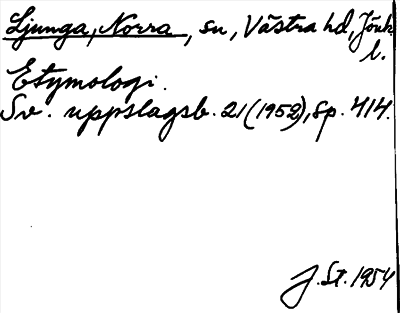 Ljunga, Norra, sn, Västra hd, Jönk.
l.
Etymologi.
Sv. uppslagsb. 21 (1952), sp. 414.
J. St. 1954